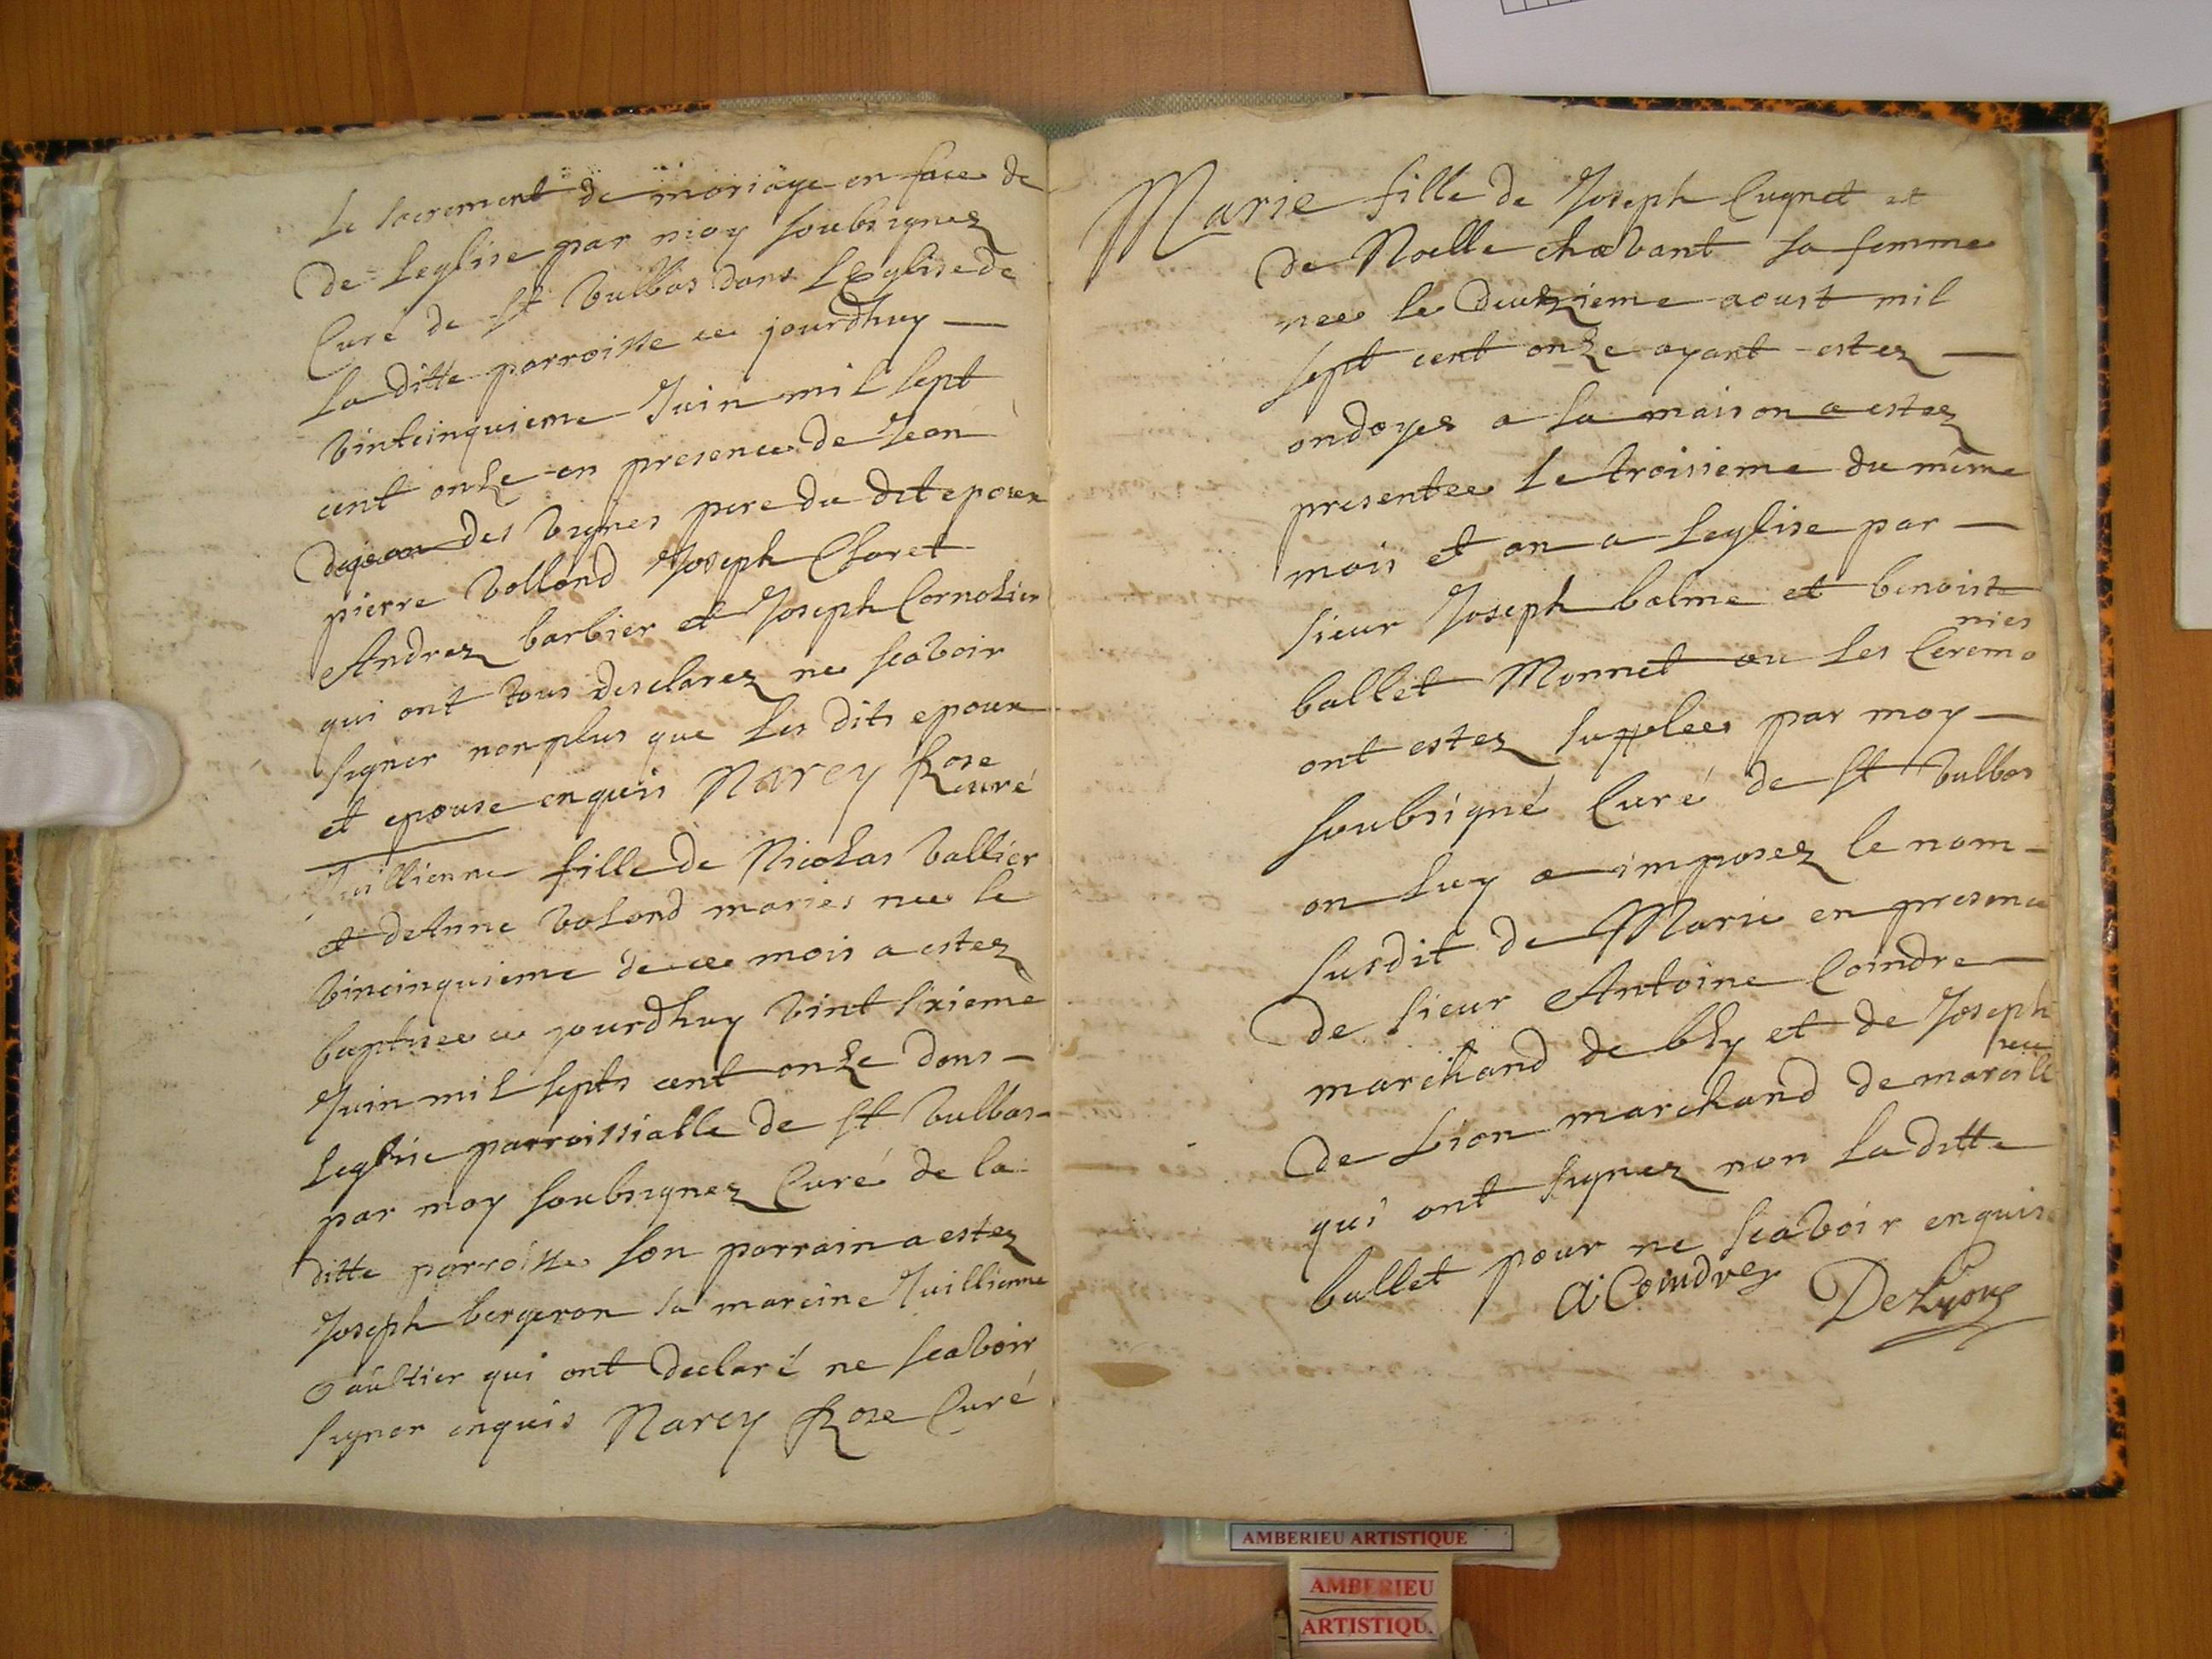 le sacrement de mariage en face de
de leglise par moy soubsignez
Curé de St Vulbas dans LEglise de
la ditte parroisse ce jourdhuy
vintcinquieme Juin mil sept
cent onze en presence de Jean
des vignes pere du dit epoux
pierre volland Joseph Claret
Andrez barbier et Joseph Cornolier
qui ont tous desclarez ne scavoir
signer nonplus que les dits epoux
et epouse enquis Narcy Rose
curé
Juillienne fille de Nicolas vallier
et de Anne voland mariés nee le
vincinquieme de ce mois a estez
baptisee ce jourdhuy vint sixieme
Juin mil septs cent onze dans
leglise parroissialle de St vulbas
par moy soubsignez Curé de la
ditte parroisse son parrain a estez
Joseph bergeron sa mareine Juillienne
Gaultier qui ont declaré ne scavoir
signer enquis Narcy Rose Curé
Marie fille de Joseph Cugnet et
de Noelle chavant sa femme
nee le deuxzieme aoust mil
sept cent onze ayant estez
ondoyee a la maison a estez
presentee le troisieme du même
mois et an a leglise par
sieur Joseph balme et benoiste
nies
ballet Monnet ou les Ceremo
ont estez supplees par moy
soubsigné Curé de St Vulbas
on luy a imposez le nom
susdit de Marie en presence
de sieur Antoine Coindre
marchand de bly et de Joseph
de Lion marchand de marcill
qui ont signez non la ditte
ballet pour ne scavoir enquise
A Coindre DeLyon
AMBERIEU ARTISTIQUE
AMBERIEU
ARTISTIQU